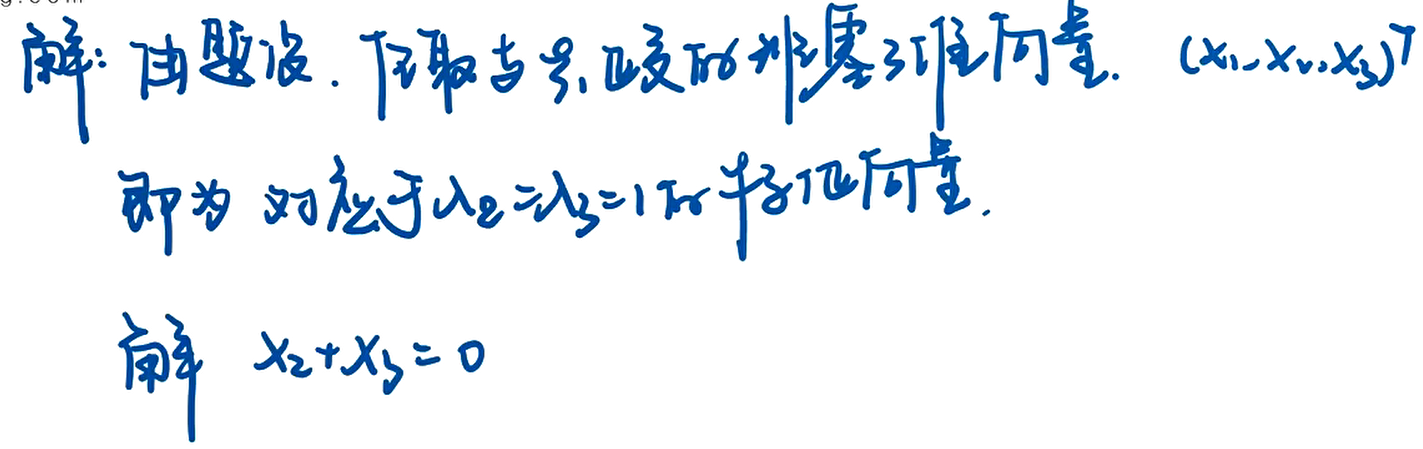 解: 由题设. 任取与ξ₁正交的非零3维向量. (x₁, x₂, x₃)ᵀ
即为 对应于λ₂=λ₃=1的特征向量.
解 x₂+x₃=0